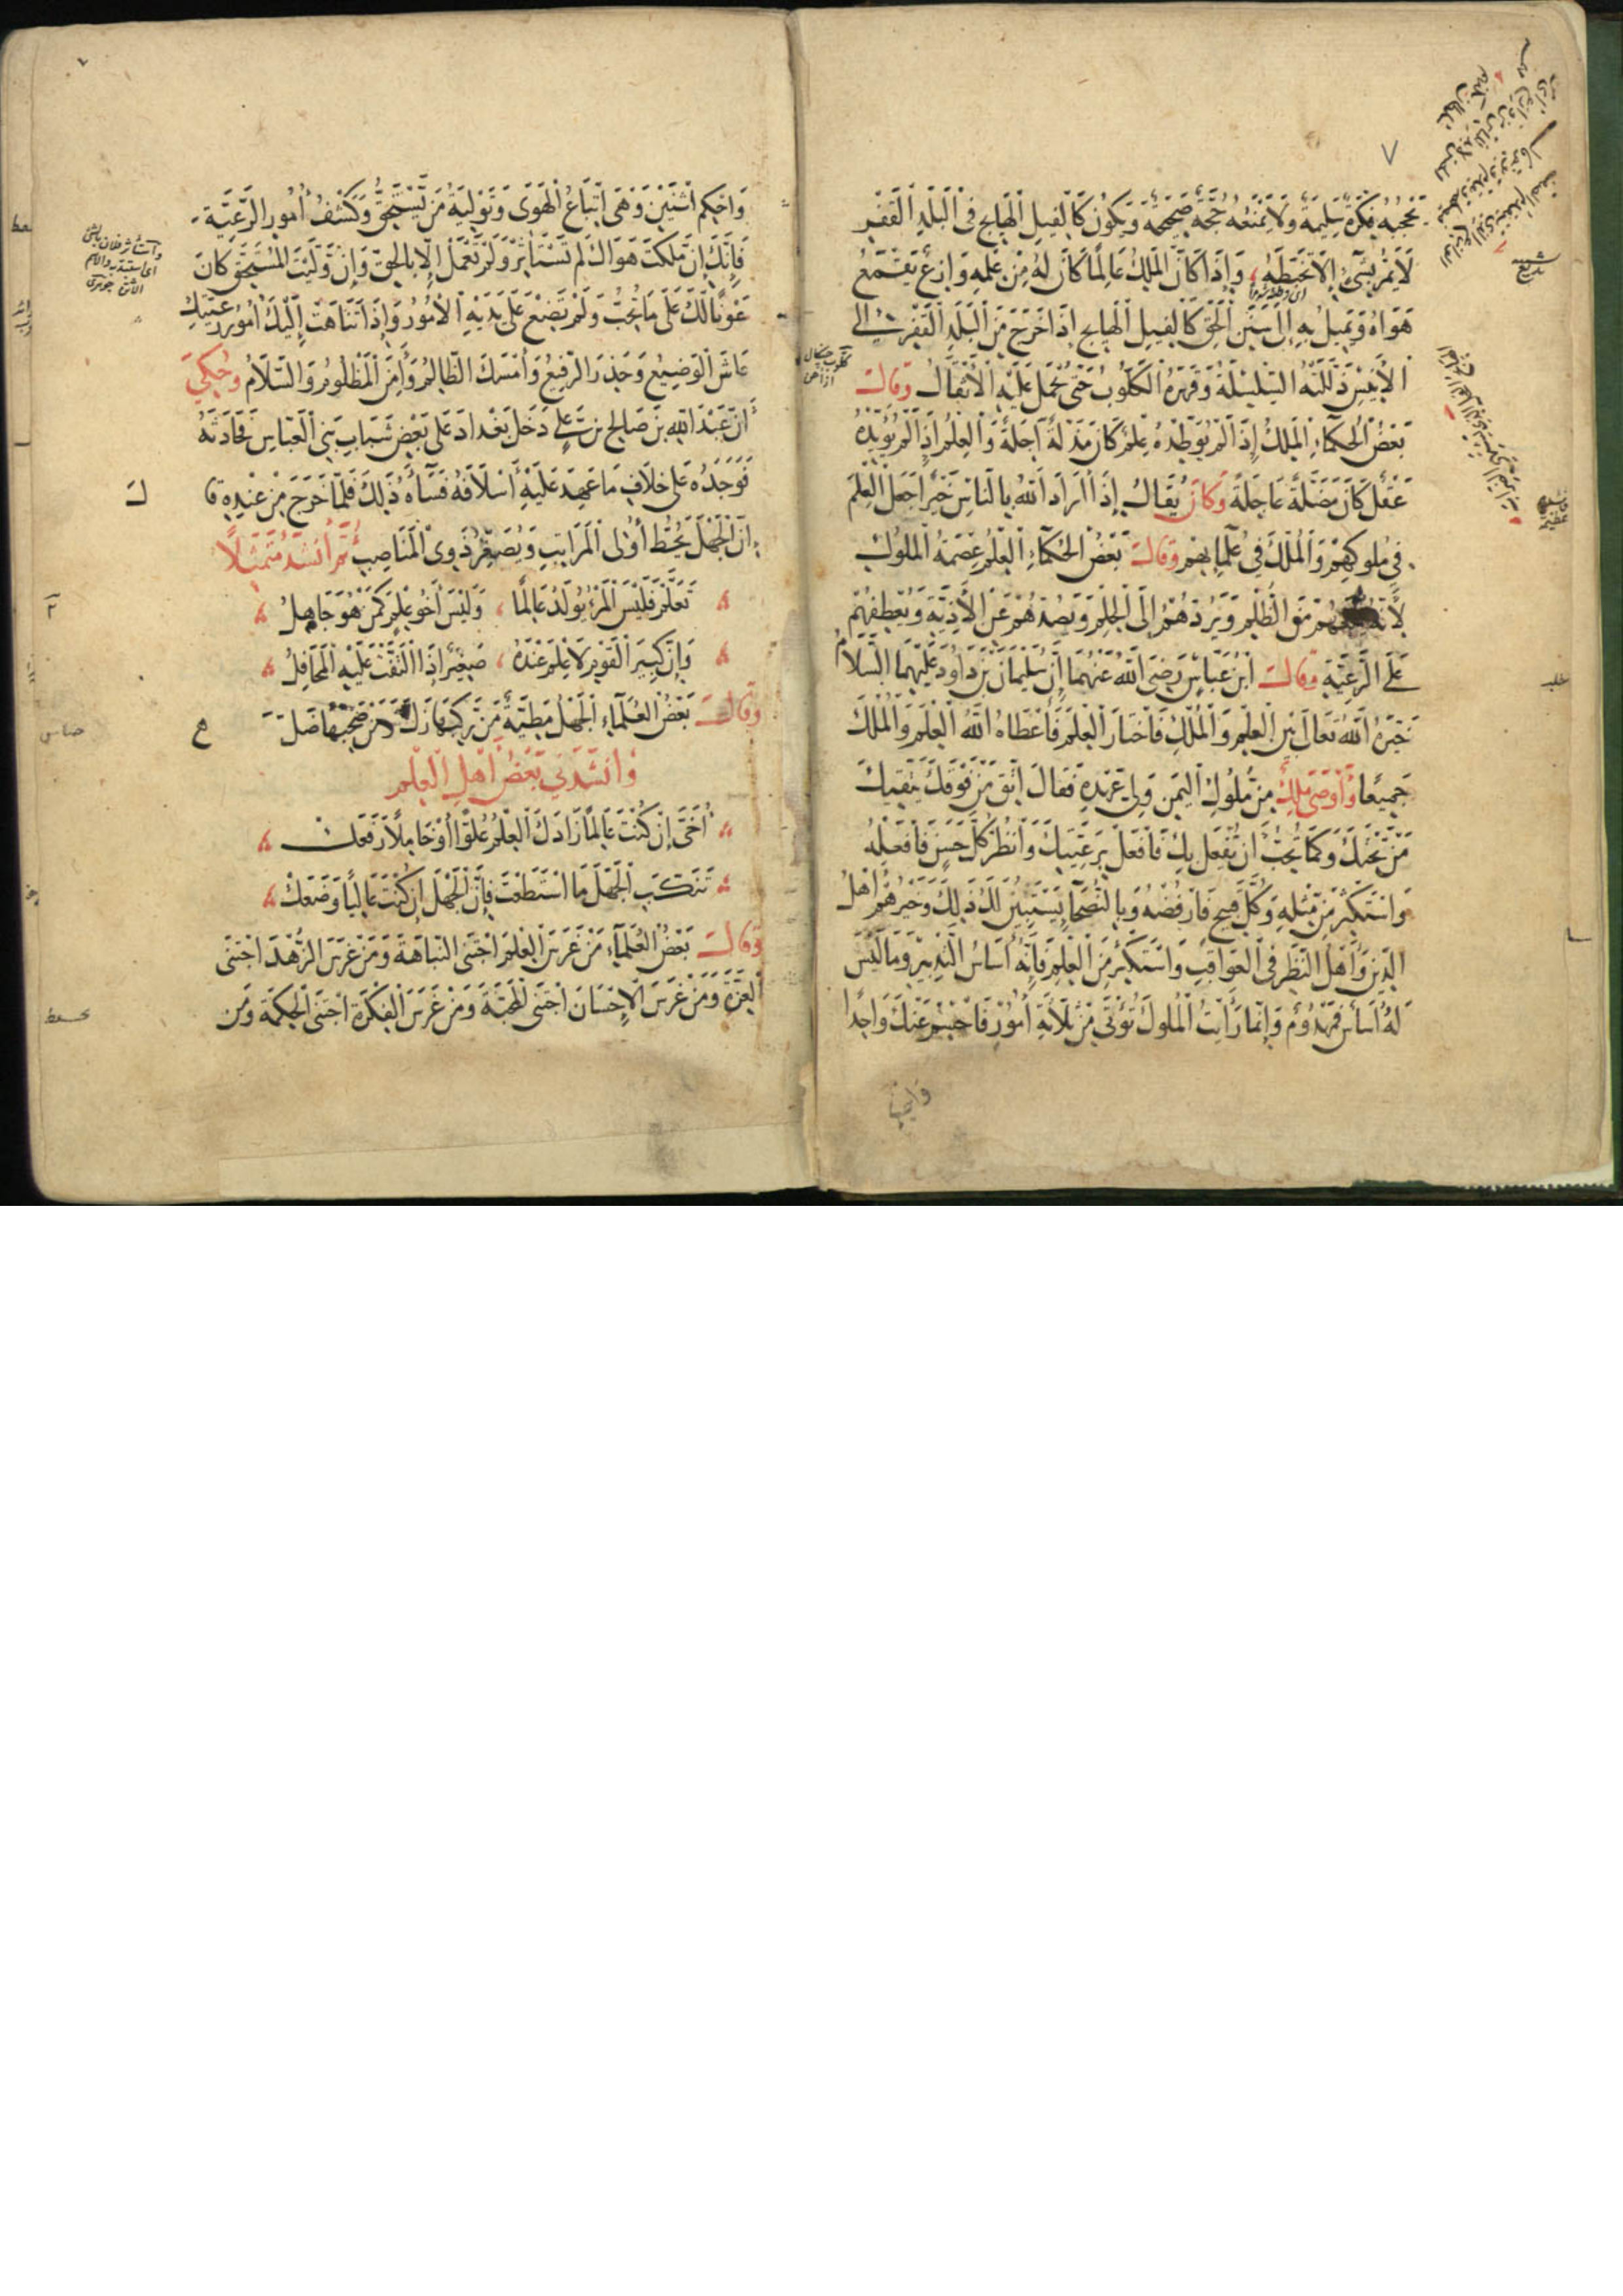 ٧
تحجبه فكرة سليمة ولا تمنعه حجة صحيحة ويكون كالفيل الهايج في البلد القفر
لا يمر بشيء إلا تخبطه وإذا كان الملك عالما كان له من علمه وازع يقمع
هواه ويميل به إلى سنن الحق كالفيل الهايج إذا خرج من البلد القفر إلى
الأنيس ذللته السلسلة وقهره الكلوب حتى تحمل عليه الأثقال وقال
بعض الحكماء الملك إذا لم يوطده علم كان مذلة آجلة والعلم إذا لم يؤيده
عقل كان مضلة عاجلة وكان يقال إذا أراد الله بالناس خيرا جعل العلم
في ملوكهم والملك في علمائهم وقال بعض الحكماء العلم عصمة الملوك
لأنه يمنعهم من الظلم ويردهم إلى الحلم ويصدهم عن الأذية ويعطفهم
على الرعية وقال ابن عباس رضي الله عنهما إن سليمان بن داود عليهما السلام
خيره الله تعالى بين العلم والملك فاختار العلم فأعطاه الله العلم والملك
جميعا وأوصى ملك من ملوك اليمن ولي عهده فقال اتق من فوقك يتقيك
من تحتك وكما تحب ان يفعل بك فافعل برعيتك وانظر كل حسن فافعله
واستكثر من مثله وكل قبيح فارفضه وبالنصحا يستبين لك ذلك وخيرهم أهل
الدين وأهل النظر في العواقب واستكثر من العلم فإنه أساس التدبير وما ليس
له أساس فمهدوم وإنما رأيت الملوك تؤتى من ثلاثة أمور فاحسم عنك واحدا
واحكم اثنين وهى اتباع الهوى وتولية من يستحق وكشف أمور الرعية
فإنك إن ملكت هواك لم تستأثر ولم تعمل إلا بالحق وإن وليت المستحق كان
عونا لك على ما تحب ولم تضع على يديه الأمور وإذا تناهت إليك أمور رعيتك
عاش الوضيع وحذر الرفيع وأمسك الظالم وأمن المظلوم والسلام وحكي
أن عبد الله بن صالح بن علي دخل بغداد على بعض شباب بني العباس فحادثه
فوجده على خلاف ما عهد عليه أسلافه فساءه ذلك فلما خرج من عنده قال
إن الجهل يحط أولى المراتب ويصغر ذوى المناصب ثم أنشد متمثلا
تعلم فليس المرء يولد عالما وليس أخو علم كمن هو جاهل
وإن كبير القوم لا علم عنده صغير إذا التفت عليه المحافل
وقال بعض العلماء الجهل مطية من ركبها زل ومن صحبها ضل
وأنشدني بعض أهل العلم
أخي إن كنت عالما زادك العلم علوا أو خاملا رفعك
تنكب الجهل ما استطعت فإن الجهل إن كنت عاليا وضعك
وقال بعض العلماء من غرس العلم اجتنى النباهة ومن غرس الزهد اجتنى
العزة ومن غرس الإحسان اجتنى المحبة ومن غرس الفكرة اجتنى الحكمة ومن